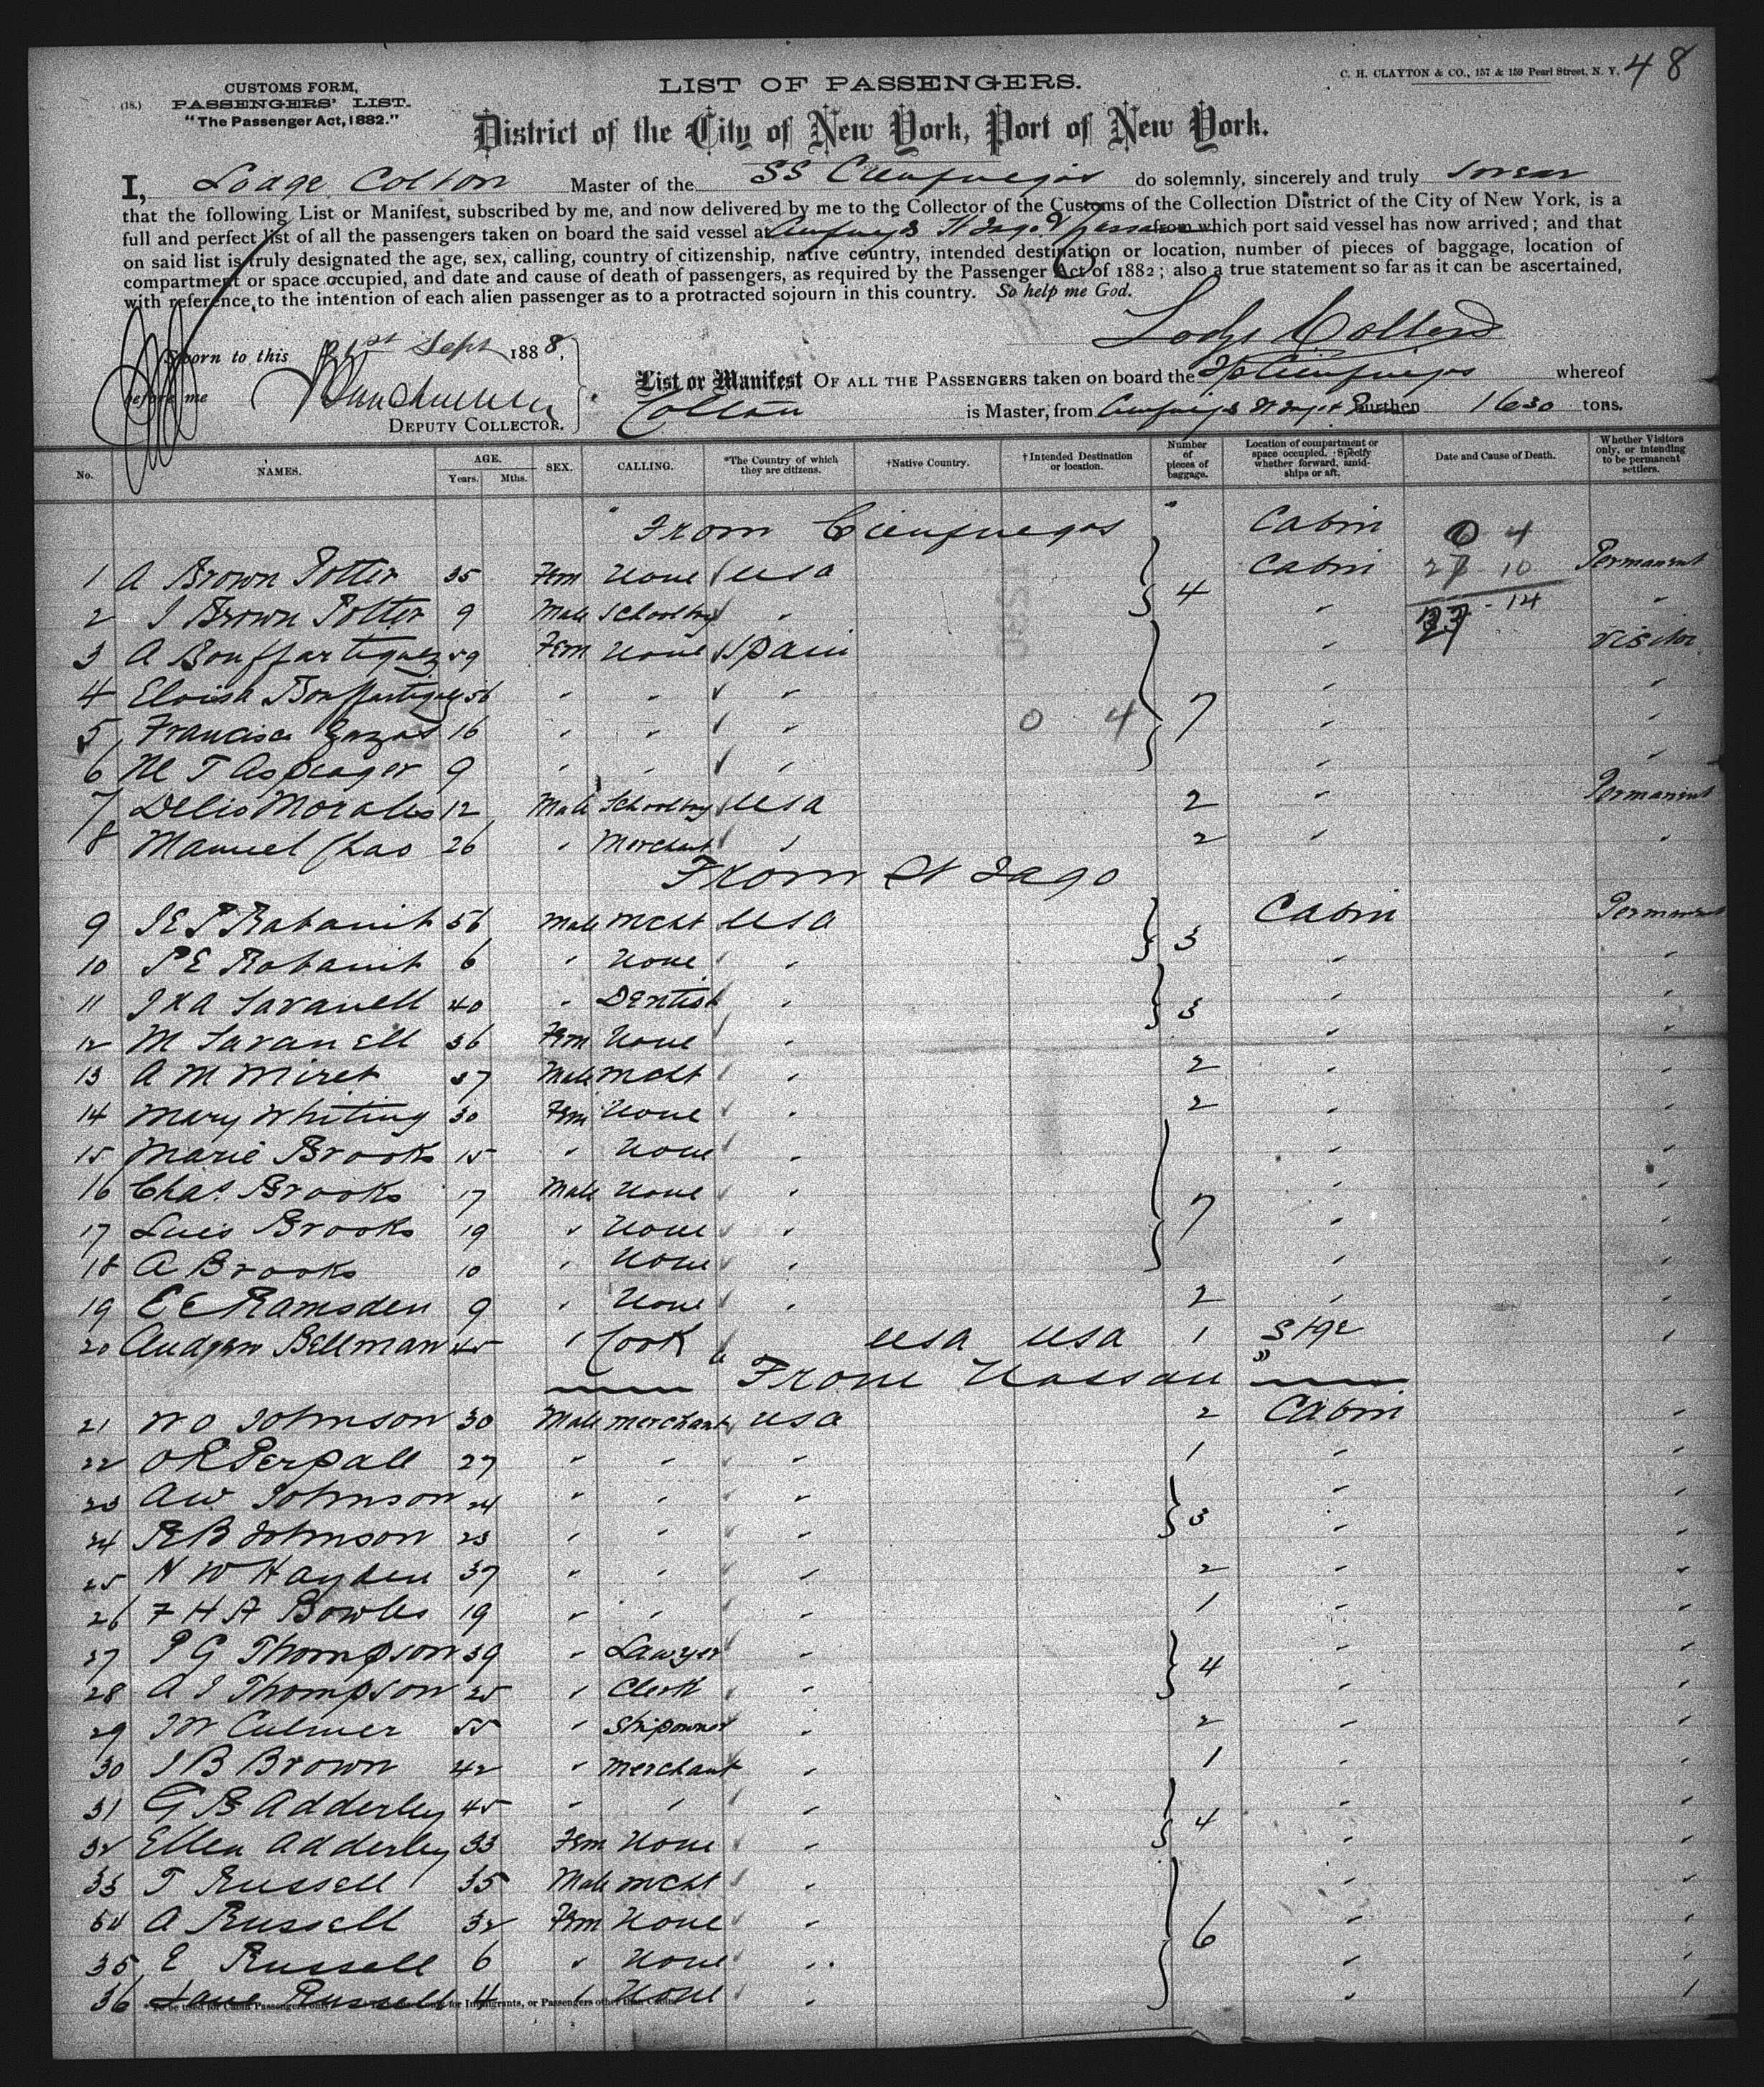 48
C. H. CLAYTON & CO., 157 & 159 Pearl Street, N. Y.
(18.)
CUSTOMS FORM,
PASSENGERS' LIST.
"The Passenger Act, 1882."
LIST OF PASSENGERS.
District of the City of New York, Port of New York.
I, Lodge Colton Master of the SS Cienfuegos do solemnly, sincerely and truly swear
that the following List or Manifest, subscribed by me, and now delivered by me to the Collector of the Customs of the Collection District of the City of New York, is a
full and perfect list of all the passengers taken on board the said vessel at Cienfuegos St Iago & from which port said vessel has now arrived; and that
on said list is truly designated the age, sex, calling, country of citizenship, native country, intended destination or location, number of pieces of baggage, location of
compartment or space occupied, and date and cause of death of passengers, as required by the Passenger Act of 1882; also a true statement so far as it can be ascertained,
with reference to the intention of each alien passenger as to a protracted sojourn in this country. So help me God.
Lodge Colton
Sworn to this 21st Sept 1888,
before me
DEPUTY COLLECTOR.
List or Manifest OF ALL THE PASSENGERS taken on board the SS Cienfuegos whereof
Colton is Master, from Cienfuegos St Iago & burthen 1630 tons.
No. NAMES. AGE. Years. Mths. SEX. CALLING. *The Country of which they are citizens. †Native Country. †Intended Destination or location. Number of pieces of baggage. Location of compartment or space occupied. Specify whether forward, amidships or aft. Date and Cause of Death. Whether Visitors only, or intending to be permanent settlers.
From Cienfuegos Cabin 0 4
1 A Brown Potter 35 Fem None USA 4 Cabin 27 10 Permanent
2 J Brown Potter 9 Male Schoolboy " " 14 "
3 A Bouffartiguez 59 Fem None Spain 7 " Visitor
4 Eloisa Bouffartiguez 56 " " " " "
5 Francisca 16 " " " 0 4 " "
6 M T 9 " " " " "
7 Delio Morales 12 Male Schoolboy USA 2 " Permanent
8 Manuel Chao 26 " Merchant " 2 " "
From St Iago
9 56 Male Mcht USA 3 Cabin Permanent
10 P E 6 " None " " "
11 40 " Dentist " 3 " "
12 M Savanell 36 Fem None " " "
13 A M Miret 37 Male Mcht " 2 " "
14 Mary Whiting 30 Fem None " 2 " "
15 Marie Brooks 15 " None " 7 " "
16 Chas. Brooks 17 Male None " " "
17 Luis Brooks 19 " None " "
18 A Brooks 10 " None " "
19 E E Ramsden 9 " None " 2 " "
20 Bellman 45 " Cook USA USA 1 Stge "
From Nassau
21 W O Johnson 30 Male Merchant USA 2 Cabin "
22 O R Perpall 27 " " " 1 " "
23 A W Johnson 24 " " " 3 " "
24 R B Johnson 23 " " " " "
25 N W Hayden 37 " " " 2 " "
26 F H A Bowles 19 " " " 1 " "
27 P G Thompson 39 " Lawyer " 4 " "
28 A J Thompson 25 " Clerk " " "
29 J W Culmer 55 " Shipowner " 2 " "
30 J B Brown 42 " Merchant " 1 " "
31 G B Adderley 45 " " " 4 " "
32 Ellen Adderley 33 Fem None " " "
33 T Russell 35 Male Mcht " 6 " "
34 A Russell 32 Fem None " " "
35 E Russell 6 " None " " "
36 Jane Russell 4 " None " " "